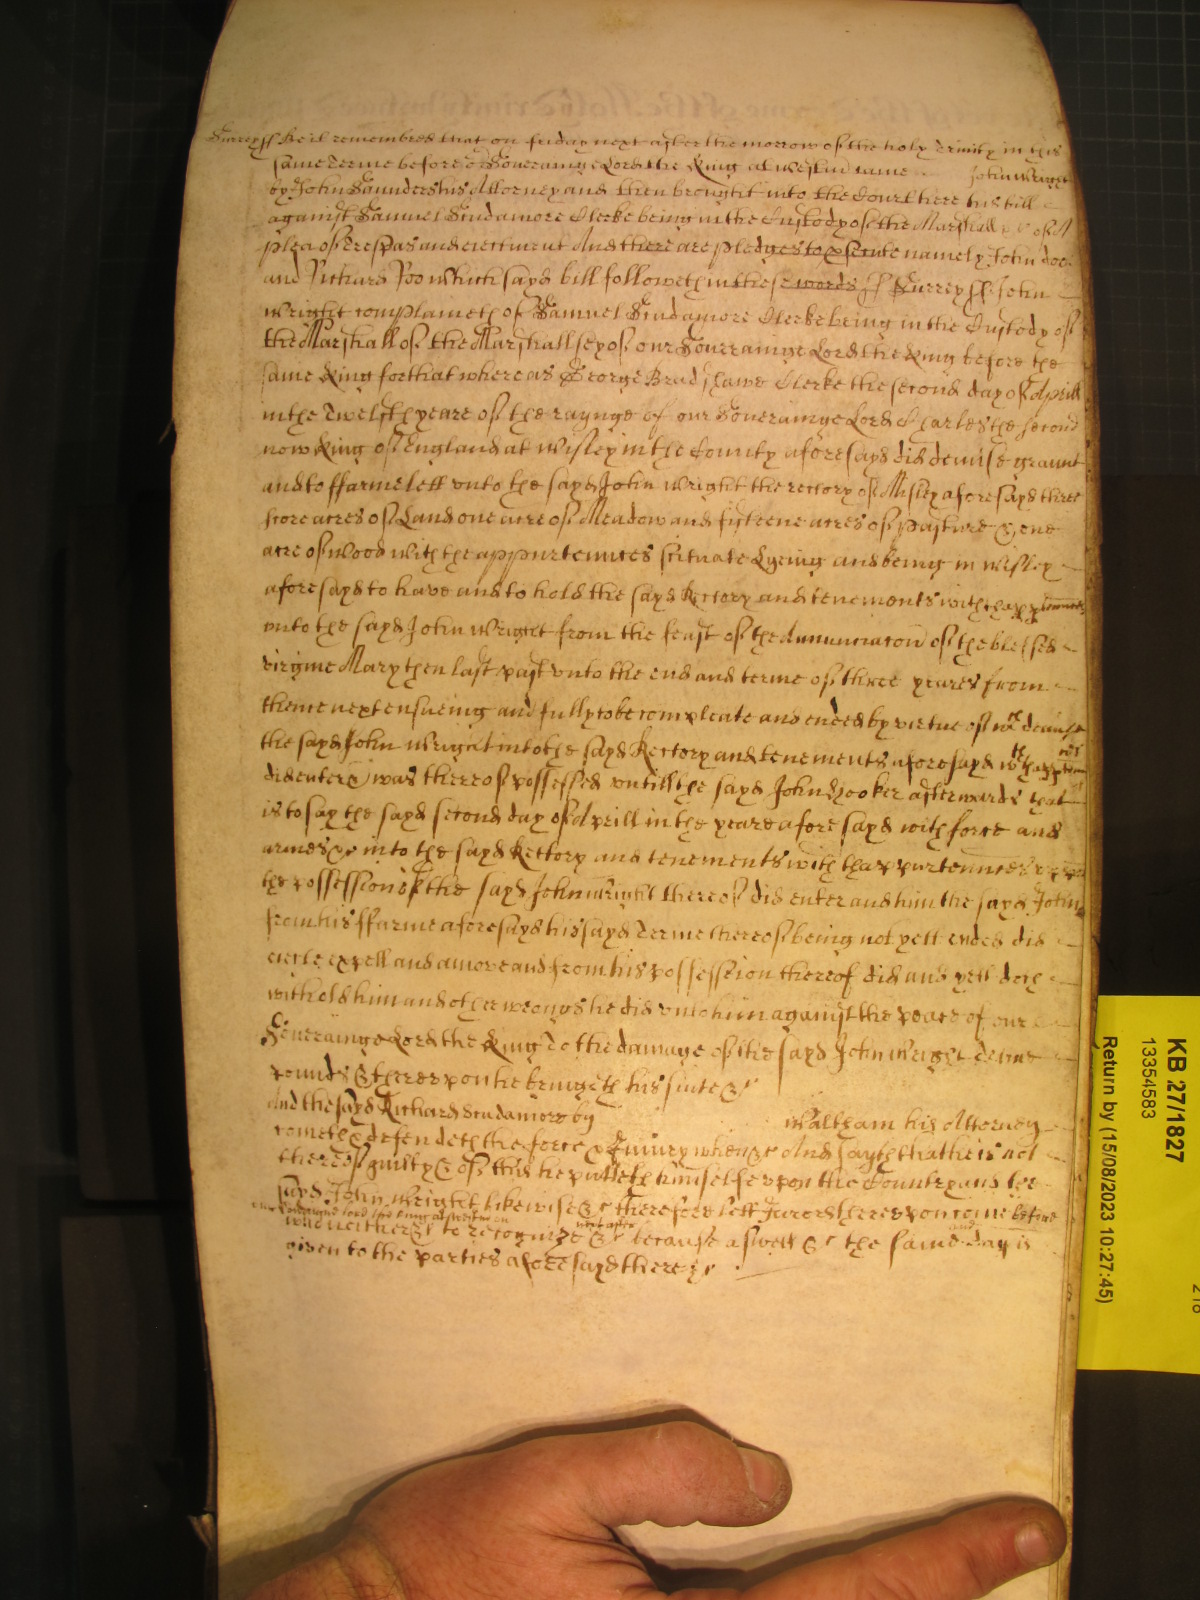 Surrey ss Be it remembred that on friday next after the morrow of the holy Trinity in this
same Terme before or Soveraigne Lord the King at Westm came John Wright
by John Saunders his Attorney and then brought into the Court here his bill
against Samuel Scudamore Clerke being in the Custody of the Marshall &c of A
plea of Trespas and eiectment And there are pledges to psecute namely John doe
and Richard Roo Which sayd bill followeth in these words ss Surrey ss John
Wright complaineth of Samuel Scudamore Clerke being in the Custody of
the Marshall of the Marshallsey of our Soveraigne Lord the King before the
same King for that whereas George Bradshawe Clerke the second day of Aprill
in the Twelfth yeare of the raynge of our Soveraigne Lord Charles the second
now King of England at Wisley in the County aforesayd did demise graunt
and to ffarme lett unto the sayd John Wright the rectory of Wisley aforesayd three
score acres of Land one acre of Meadow and fifteene acres of pasture & one
acre of wood with the appurtennces scituate Lyeing and being in Wisley
aforesayd to have and to hold the sayd Rectory and tenements with thappurtennces
unto the sayd John Wright from the feast of the Annunciacon of the blessed
virgine Mary then last past unto the end and terme of three yeares from
thence next ensueing and fully to be compleate and ended by virtue of wch demise
the sayd John Wright into the sayd Rectory and tenements aforesayd wth thappurtennces
did enter & was thereof possessed untill the sayd John Hooker afterwards that
is to say the sayd second day of Aprill in the yeare aforesayd with force and
armes &c into the sayd Rectory and tenements with thappurtennces upon
the possession of the sayd John Wright thereof did enter and him the sayd John
from his ffarme aforesayd his sayd Terme thereof being not yett ended did
eiecte expell and amove and from his possession thereof did and yett doth
withold him and other wrongs he did unto him against the peace of our
Soveraigne Lord the King To the damage of the sayd John Wright
pounds & thereupon he bringeth his suite &c
And the sayd Richard Scudamore by Waltham his Attorney
cometh & defendeth the force & Iniury when &c And sayth that he is not
thereof guilty & of this he putteth himselfe upon the Country and the
sayd John Wright likewise &c therefore lett Jurors thereupon come before
our Soveraigne lord the king at Westm on next after
who neither &c to recognize &c because aswell &c the same day is
given to the parties aforesayd there &c
KB 27/1827
13354583
Return by (15/08/2023 10:27:45)